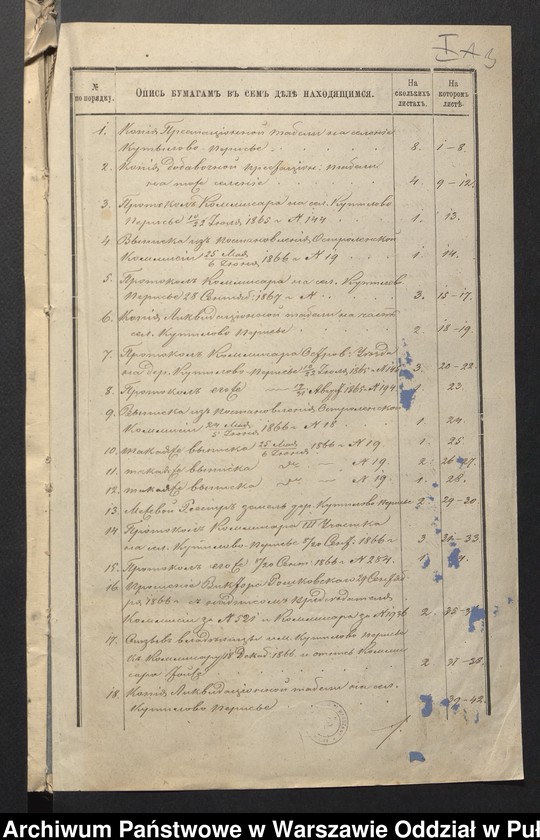 I A 3
№ по порядку.
Опись бумагамъ въ семъ дѣлѣ находящимся.
На сколькихъ листахъ.
На которомъ листѣ.
1. Копія Престаціонной табели на селеніе
Купѣлово-Перысье 8. 1-8.
2. Копія добавочной Престаціон: табели
на тоже селеніе 4 9-12.
3. Протоколъ Коммисара на сел. Купѣлово
Перысье Іюля 1865 г N 144 1. 13.
4 Выписка изъ постановленія Остроленской
Коммисіи 25 Мая/6 Іюня 1866 г N 19 1. 14.
5. Протоколъ Коммисара на сел. Купѣлово
Перысье 28 Сентяб: 1867 г N 3. 15-17.
6. Копія Ликвидаціонной табели на часть
сел. Купѣлово Перысье 2 18-19.
7. Протоколъ Коммисара Остров: Уѣзда
на дер. Купѣлово-Перысье Іюля 1865 г N 3. 20-22
8. Протоколъ егоже 1865 N 194 1. 23.
9. Выписка изъ постановленія Остроленской
Коммисіи 24 Мая/5 Іюня 1866 г N 18 1. 24.
10. такаяже выписка 25 Мая/6 Іюня 1866 г N 19. 1. 25.
11. такаяже выписка N 19. 2. 26-27.
12. такаяже выписка N 19. 1. 28.
13. Межевой Регистръ земель дер. Купѣлово Перысье 2. 29-30
14 Протоколъ Коммисара III Участка
на сел. Купѣлово-Перысье 8/20 Сент: 1866 г 3 31-33
15. Протоколъ егоже 8/20 Сент: 1866 г N 254.
16 Прошеніе Виктора
1866 г съ надписомъ Предсѣдателя
Коммисіи за N 521 и Коммисара за N 2. 35-
17. Отзывъ владѣлицы им. Купѣлово Перысье
къ Коммисару 18 Декаб: 1866 и опись Комми
сара 2
18. Копія Ликвидаціонной табели на сел.
Купѣлово Перысье 39-42.
Archiwum Państwowe w Warszawie Oddział w Puł